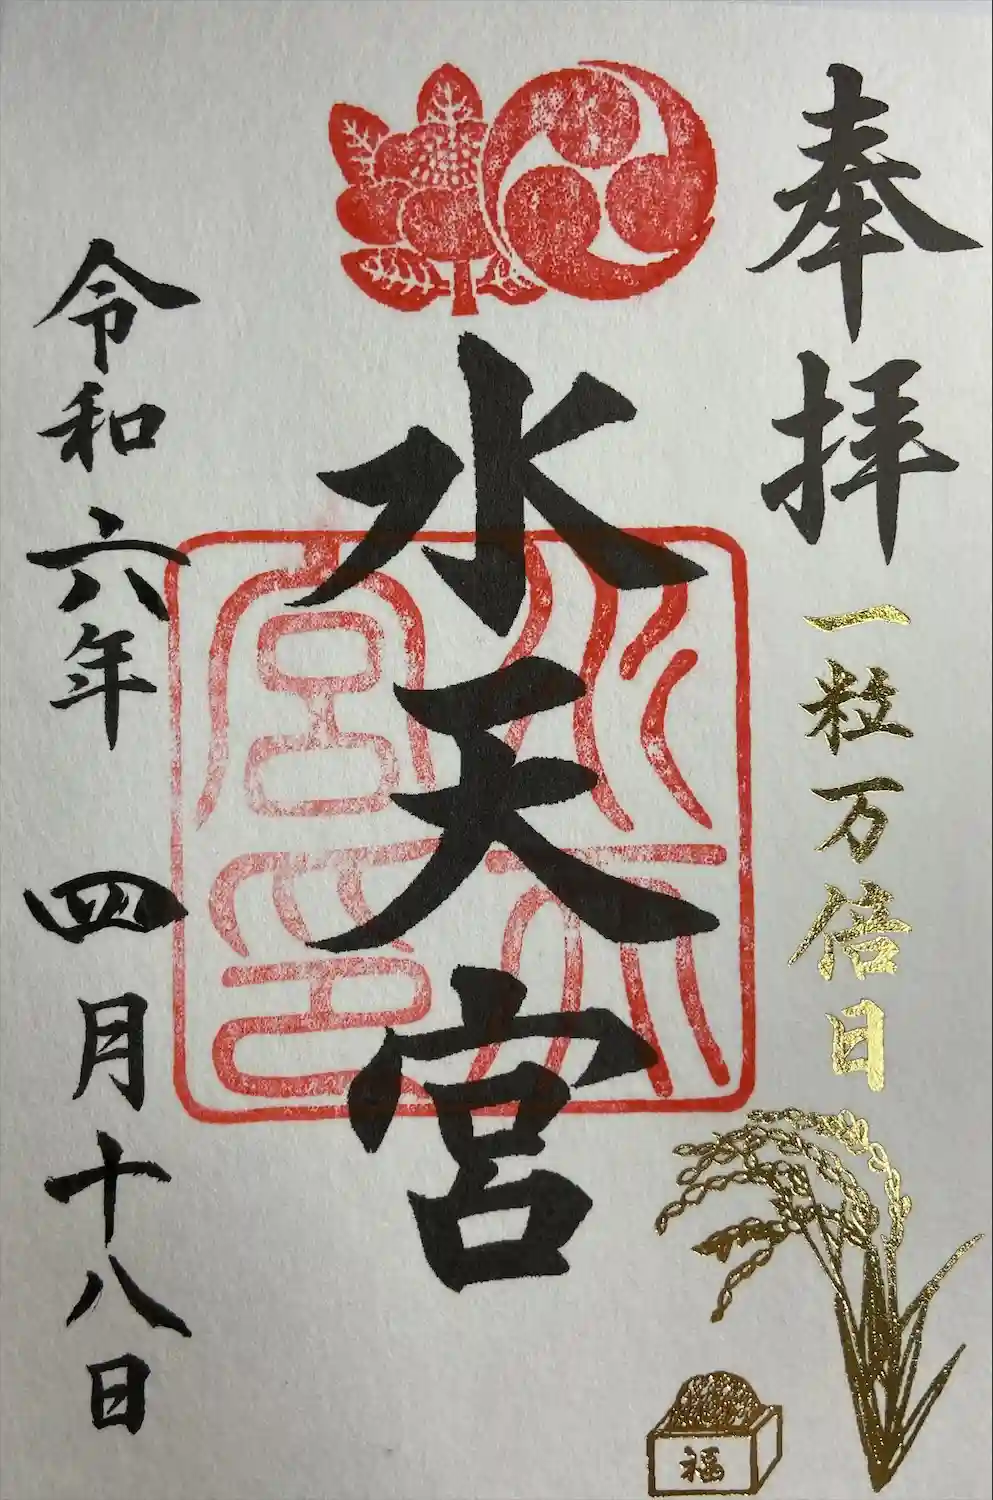 奉拝
一粒万倍日
福
水天宮
水天宮印
令和六年 四月十八日